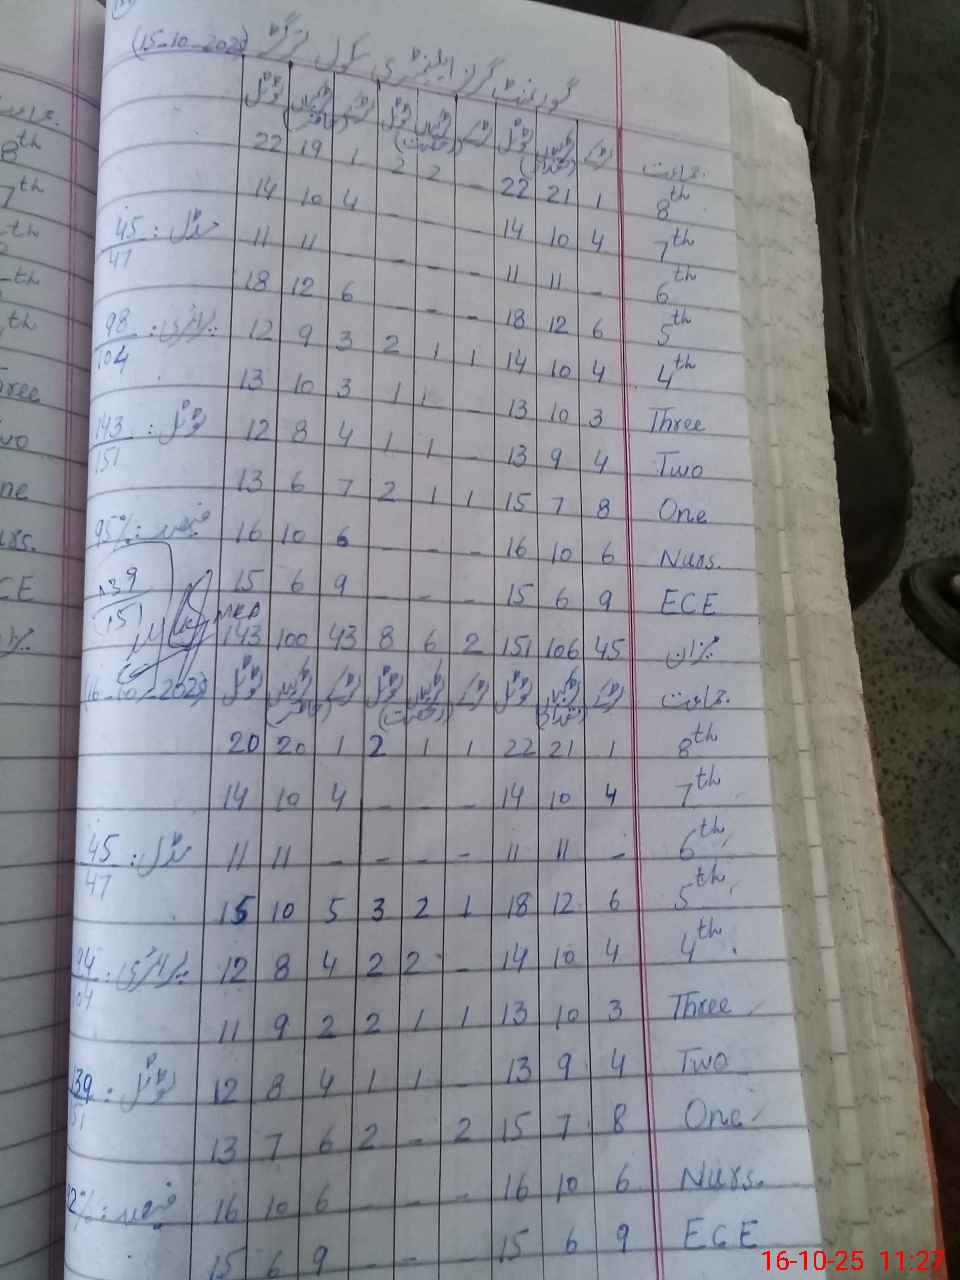 (15-10-2025) گورنمنٹ گرلز ایلیمنٹری سکول
جماعت لڑکے لڑکیاں ٹوٹل لڑکے لڑکیاں ٹوٹل لڑکے لڑکیاں ٹوٹل
(تعداد) (حاضر)
8th 1 21 22 - 2 2 1 19 22
7th 4 10 14 - - - 4 10 14
6th - 11 11 - - - - 11 11 مڈل: 45/47
5th 6 12 18 - - - 6 12 18
4th 4 10 14 1 1 2 3 9 12 پرائمری: 98/104
Three 3 10 13 - 1 1 3 10 13
Two 4 9 13 - 1 1 4 8 12 ٹوٹل: 143/151
One 8 7 15 1 1 2 7 6 13
Nurs. 6 10 16 - - - 6 10 16 فیصد: 95%
ECE 9 6 15 - - - 9 6 15
139/151
میزان 45 106 151 2 6 8 43 100 143
جماعت لڑکے لڑکیاں ٹوٹل لڑکے لڑکیاں ٹوٹل لڑکے لڑکیاں ٹوٹل (16-10-2025)
(تعداد) (حاضر)
8th 1 21 22 1 1 2 1 20 20
7th 4 10 14 - - - 4 10 14
6th - 11 11 - - - - 11 11 مڈل: 45/47
5th 6 12 18 1 2 3 5 10 15
4th 4 10 14 - 2 2 4 8 12 پرائمری: 94/104
Three 3 10 13 1 1 2 2 9 11
Two 4 9 13 - 1 1 4 8 12 ٹوٹل: 139/151
One 8 7 15 2 - 2 6 7 13
Nurs. 6 10 16 - - - 6 10 16 فیصد: 92%
ECE 9 6 15 - - - 9 6 15
8th
7th
Three
Two
One
Nurs.
ECE
16-10-25 11:27